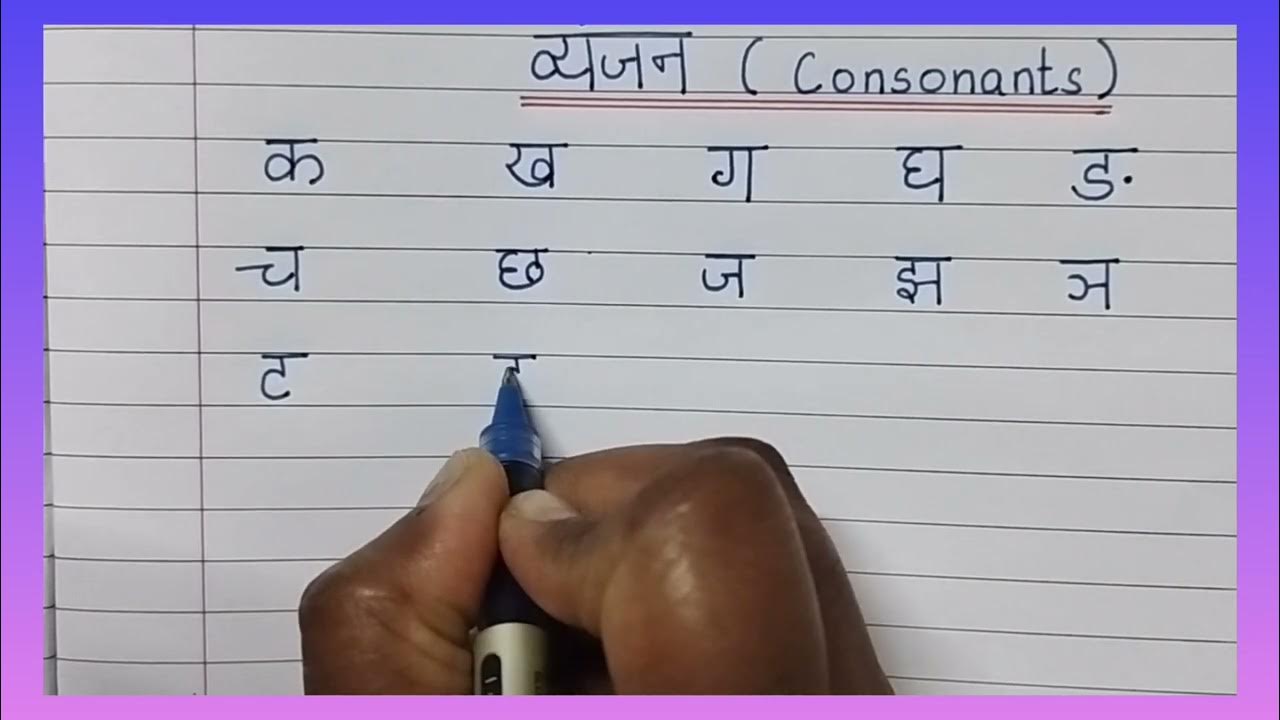 व्यंजन ( Consonants )
क ख ग घ ङ
च छ ज झ ञ
ट